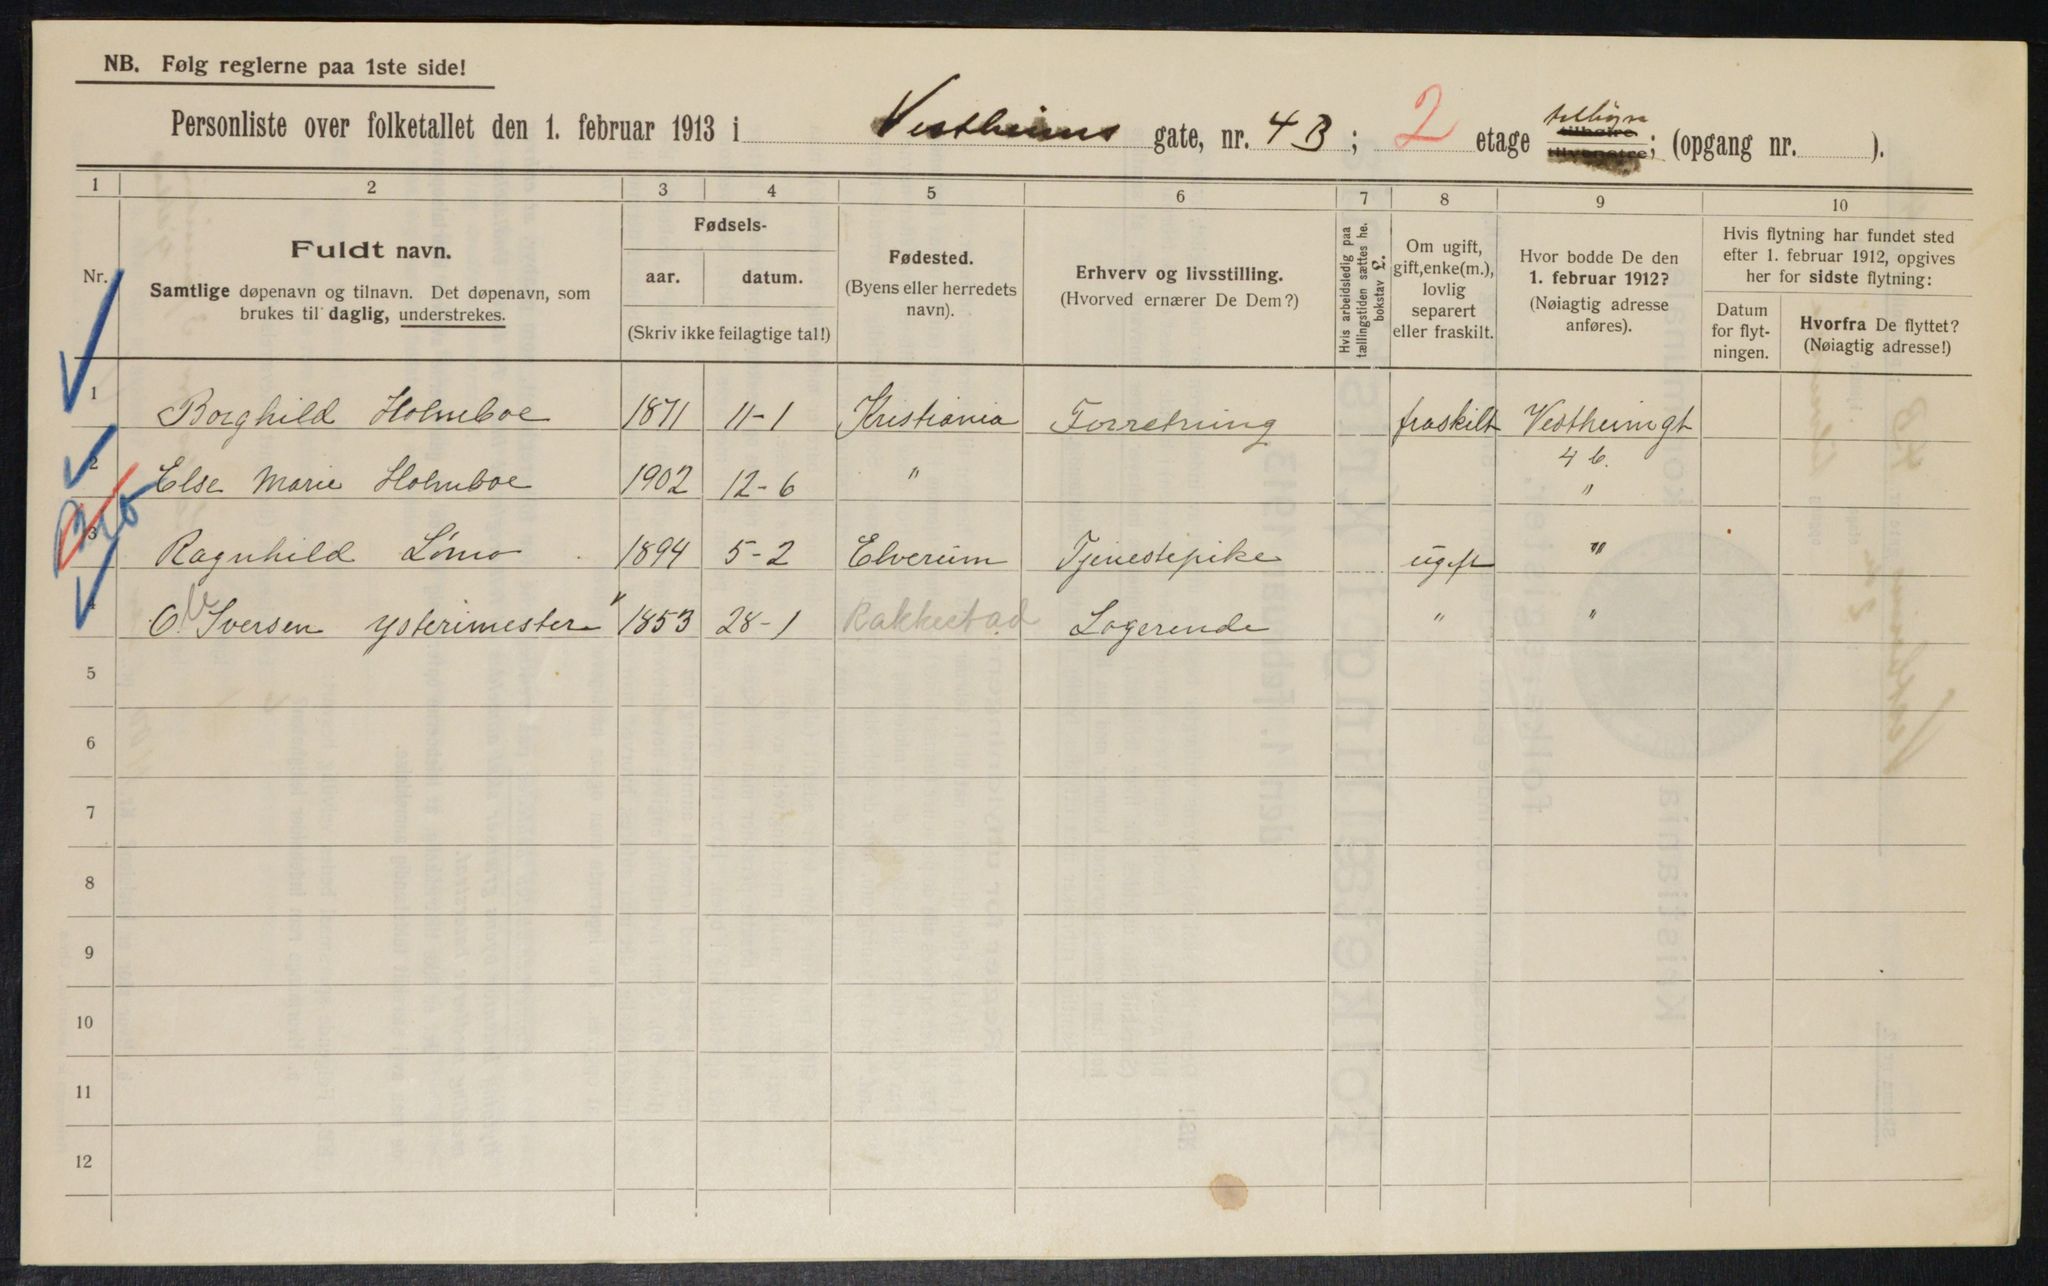 NB. Følg reglerne paa 1ste side!
Personliste over folketallet den 1. februar 1913 i Vestheims gate, nr. 4B; 2 etage tilhøire tilvenstre; (opgang nr. ).
tilhøire
1 2 3 4 5 6 7 8 9 10
Nr.
Fuldt navn.
Samtlige døpenavn og tilnavn. Det døpenavn, som
brukes til daglig, understrekes.
Fødsels-
aar. datum.
(Skriv ikke feilagtige tal!)
Fødested.
(Byens eller herredets
navn).
Erhverv og livsstilling.
(Hvorved ernærer De Dem?)
Hvis arbeidsledig paa
tællingstiden sættes her
bokstav L.
Om ugift,
gift, enke(m.),
lovlig
separert
eller fraskilt.
Hvor bodde De den
1. februar 1912?
(Nøiagtig adresse
anføres).
Hvis flytning har fundet sted
efter 1. februar 1912, opgives
her for sidste flytning:
Datum
for flyt-
ningen.
Hvorfra De flyttet?
(Nøiagtig adresse!)
1 Borghild Holmboe 1871 11-1 Kristiania Forretning fraskilt Vestheimgt
4 b.
2 Else Marie Holmboe 1902 12-6 " "
3 Ragnhild Lømo 1894 5-2 Elverum Tjenestepike ugift "
4 O. Iversen ysterimester 1853 28-1 Rakkestad Logerende " "
5
6
7
8
9
10
11
12